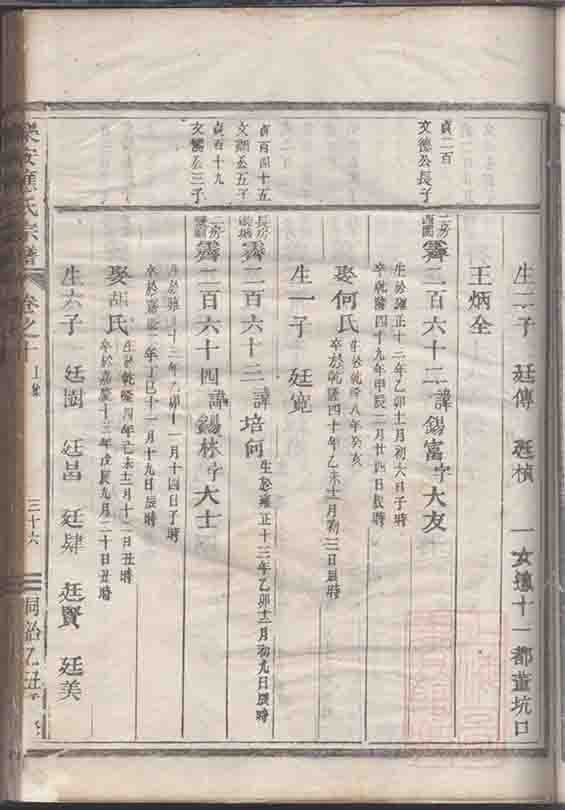 生二子 廷傳 廷楨 一女適十一都董坑口
王炳全
貞二百
文德公長子
二房
霽二百六十二諱錫富字大友
生於雍正十二年乙卯十一月初六日子時
卒於乾隆四十九年甲辰二月廿四日辰時
娶何氏
生於乾隆八年癸亥
卒於乾隆四十年乙未十一月初三日辰時
生一子 廷寬
貞百四十五
文顯公五子
長房
霽二百六十三諱培何
生於雍正十三年乙卯十二月初九日辰時
貞百十九
公三子
二房
霽二百六十四諱錫林字大士
生於雍正十三年乙卯十一月十四日子時
年丁巳十一月十九日辰時
娶胡氏
生於乾隆四年己未十二月十二日丑時
卒於嘉慶十三年戊辰九月二十日丑時
生六子 廷園 廷昌 廷肆 廷賢 廷美
樂安 氏宗譜 卷之十 三十六 同治乙丑